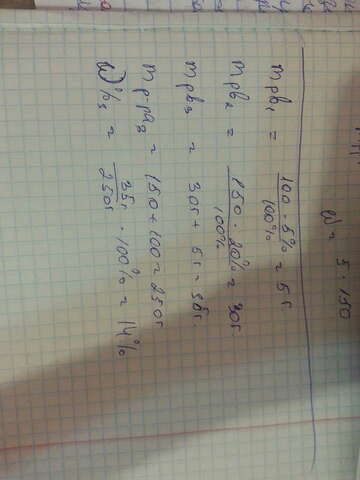 W = 5 · 150
m рв₁ = 100 · 5% / 100% = 5г
m рв₂ = 150 · 20% / 100% = 30г
m рв₃ = 30г + 5г = 35г.
m р-ра₃ = 150 + 100 = 250г
W%₃ = 35г / 250г · 100% = 14%